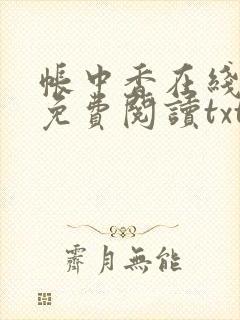 帳中香在綫
免費閱讀txt
霽月無能